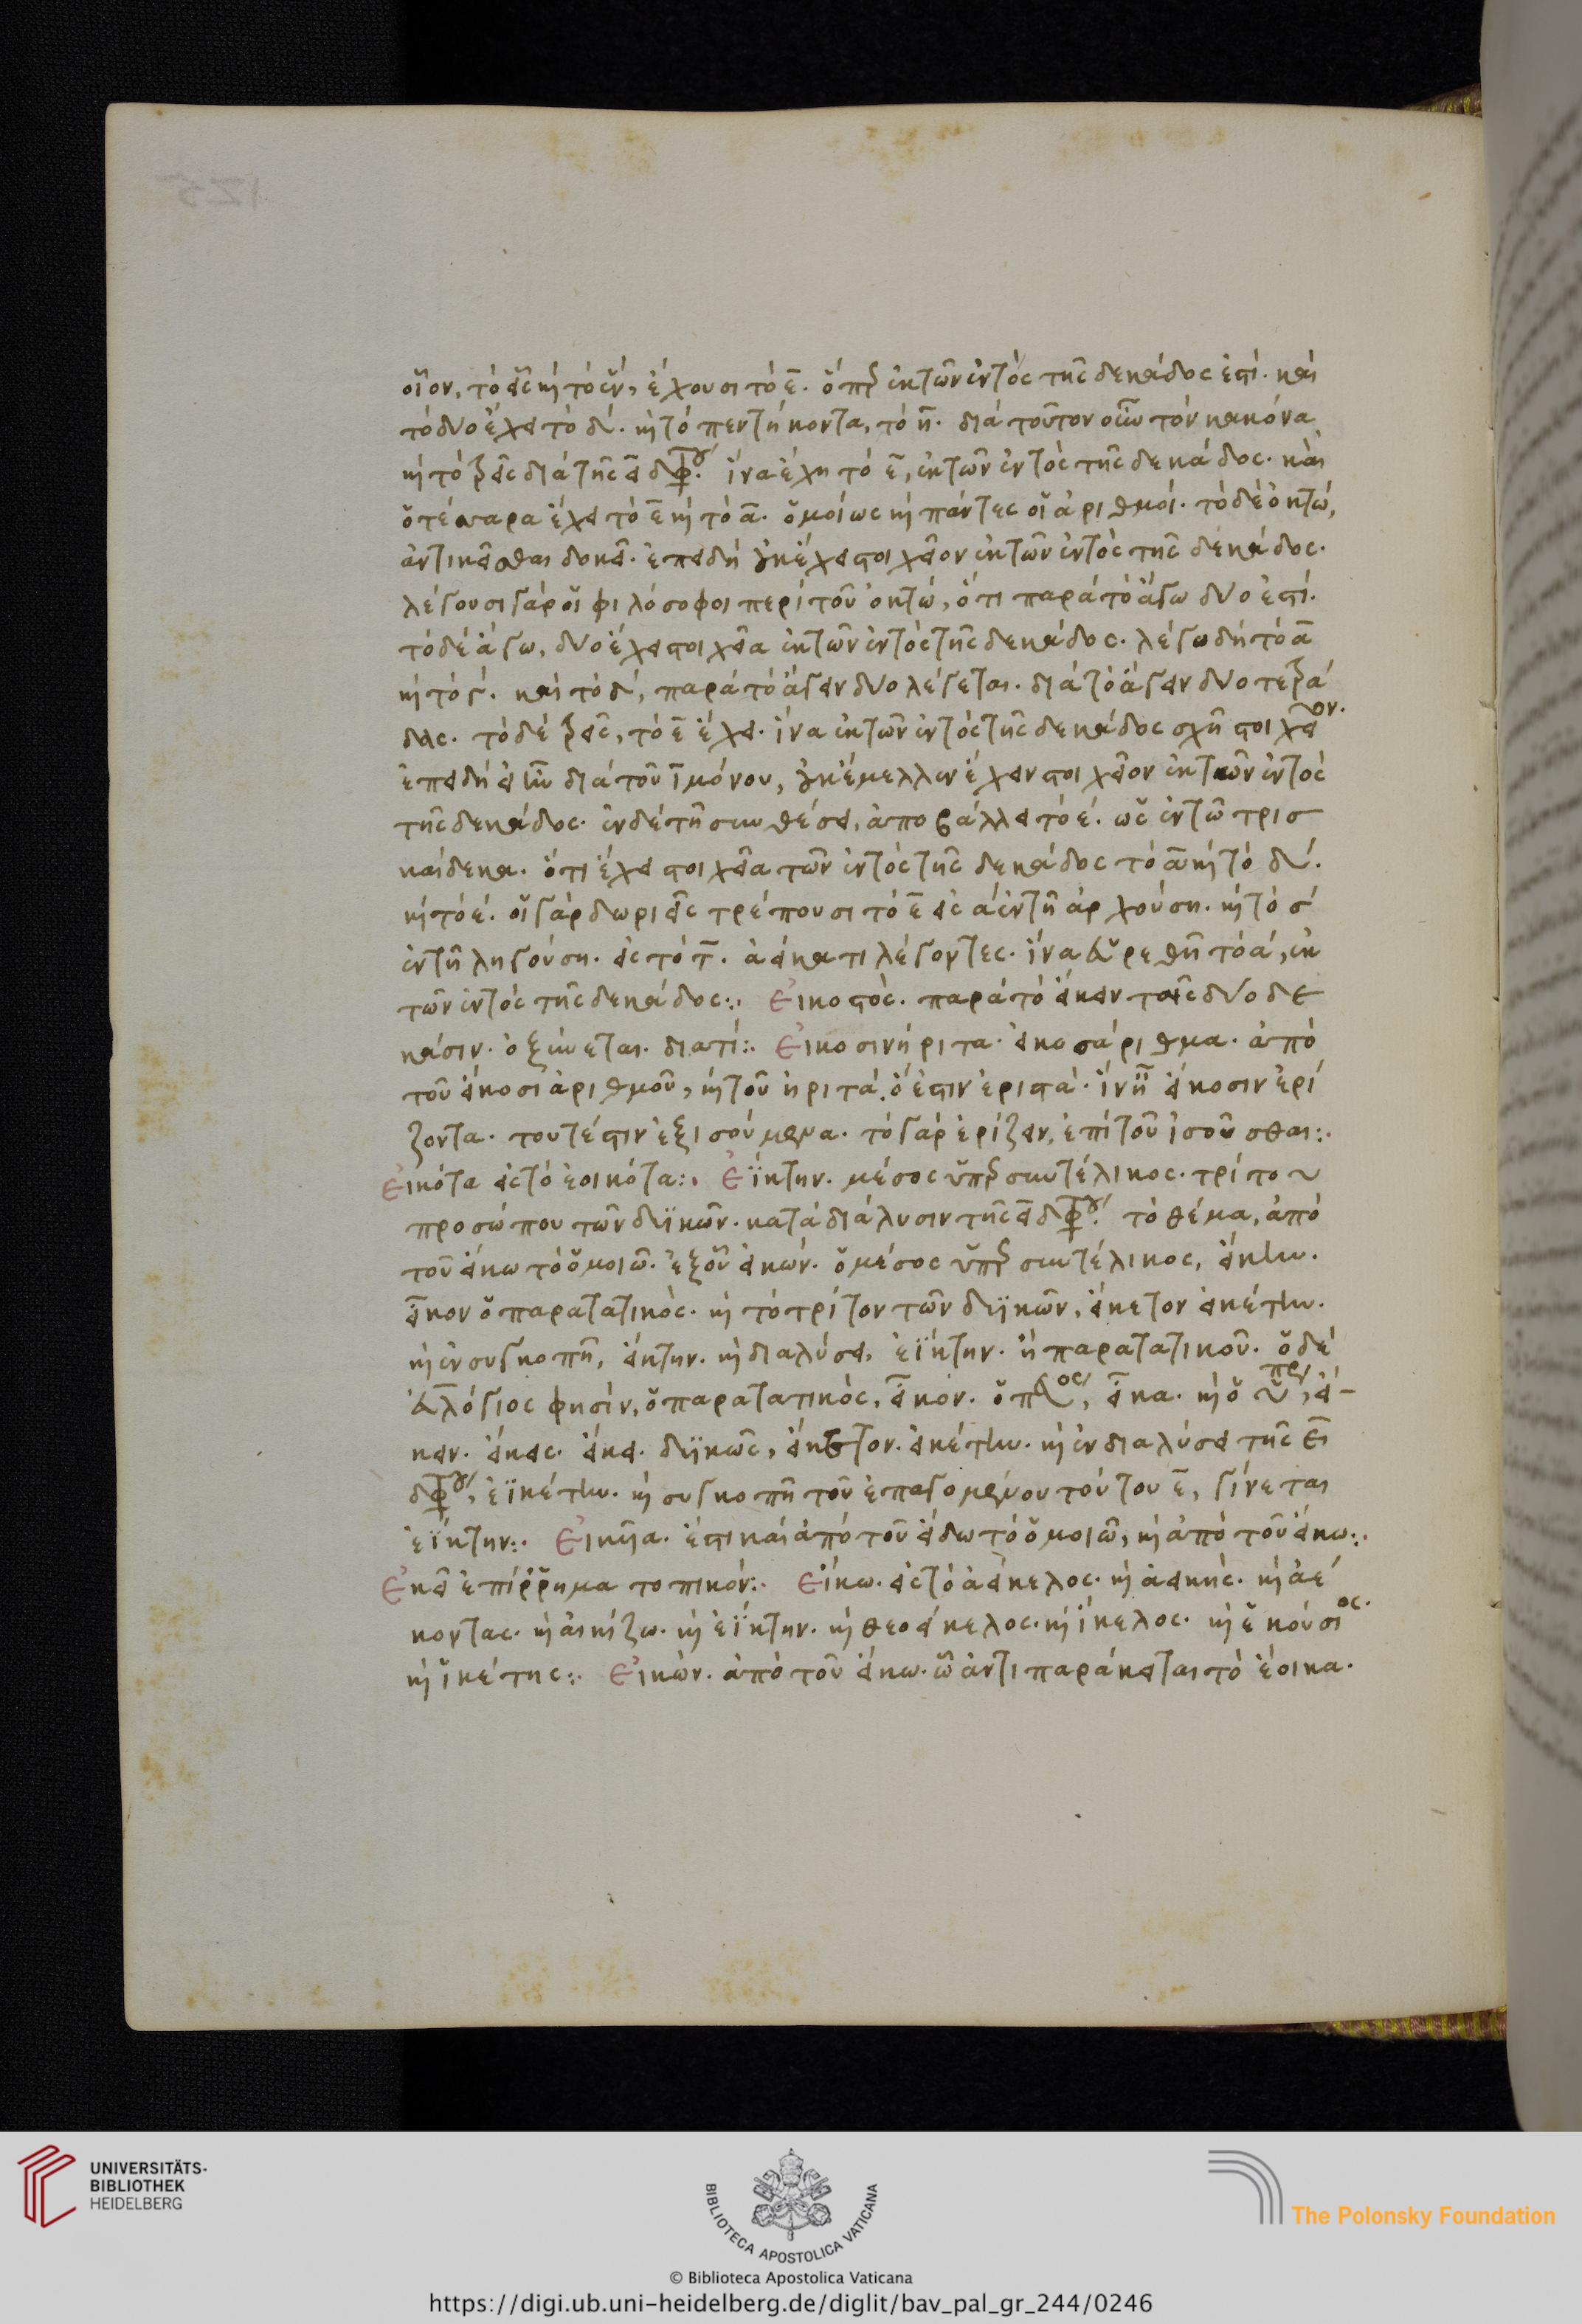 οἷον, τὸ εἷς καὶ τὸ ἓν, ἔχουσι τὸ ε̄. ὅπερ ἐκ τῶν ἐντὸς τῆς δεκάδος ἐστί. καὶ
τὸ δύο ἔχει τὸ δύ. καὶ τὸ πεντήκοντα, τὸ ν̄. διὰ τοῦτον οὖν τὸν κανόνα
καὶ τὸ τρεῖς διὰ τῆς ει διφθόγγου. ἵνα ἔχη τὸ ε̄, ἐκ τῶν ἐντὸς τῆς δεκάδος. καὶ
ὁ τέσσαρα ἔχει τὸ ε̄ καὶ τὸ ᾱ. ὁμοίως καὶ πάντες οἱ ἀριθμοί. τὸ δὲ ὀκτώ,
ἀντικεῖσθαι δοκεῖ. ἐπειδὴ οὐκ ἔχει στοιχεῖον ἐκ τῶν ἐντὸς τῆς δεκάδος.
λέγουσι γὰρ οἱ φιλόσοφοι περὶ τοῦ ὀκτώ, ὅτι παρὰ τὸ ἄγω δύο ἐστί.
τὸ δὲ ἄγω, δύο ἔχει στοιχεῖα ἐκ τῶν ἐντὸς τῆς δεκάδος. λέγω δὴ τὸ ᾱ
καὶ τὸ γ. καὶ τὸ δύ, παρὰ τὸ ἄγειν δύο λέγεται. διὰ τὸ ἄγειν δύο τετρά
δας. τὸ δὲ τρεῖς, τὸ ε̄ ἔχει. ἵνα ἐκ τῶν ἐντὸς τῆς δεκάδος σχῆ στοιχεῖον.
ἐπειδὴ εἰ ἦν διὰ τοῦ ῑ μόνου, οὐκ ἔμελλεν ἔχειν στοιχεῖον ἐκ τῶν ἐντὸς
τῆς δεκάδος. ἐν δὲ τῇ συνθέσει, ἀποβάλλει τὸ έ. ὡς ἐν τῶ τρισ
καίδεκα. ὅτι ἔχει στοιχεῖα τῶν ἐντὸς τῆς δεκάδος τὸ ᾱ καὶ τὸ δύ.
καὶ τὸ έ. οἱ γὰρ δωριεῖς τρέπουσι τὸ ε̄ εἰς ά ἐν τῇ ἀρχούση. καὶ τὸ σ
ἐν τῇ ληγούση. εἰς τὸ τ̄. ἀείκατι λέγοντες. ἵνα εὑρεθῇ τὸ ά, ἐκ
τῶν ἐντὸς τῆς δεκάδος:. Εἰκοστὸς. παρὰ τὸ εἴκειν ταῖς δύο δε
κάσιν. ὀξύνεται. διατί:. Εἰκοσινήριτα. εἰκοσάριθμα. ἀπὸ
τοῦ εἴκοσι ἀριθμοῦ, καὶ τοῦ ἠριτά. ὅ ἐστιν ἐριστὰ. ἵν' ᾖ εἴκοσιν ἐρί
ζοντα. τουτέστιν ἐξισούμενα. τὸ γὰρ ἐρίζειν, ἐπὶ τοῦ ἰσοῦσθαι:.
Εἰκότα εἰς τὸ ἐοικότα:. Ἐΐκτην. μέσος ὑπερσυντέλικος. τρίτου
προσώπου τῶν δυϊκῶν. κατὰ διάλυσιν τῆς ει διφθόγγου. τὸ θέμα, ἀπὸ
τοῦ εἴκω τὸ ὁμοιῶ. ἐξ οὗ εἰκών. ὁ μέσος ὑπερσυντέλικος, εἴκειν.
εἶκον ὁ παρατατικὸς. καὶ τὸ τρίτον τῶν δυϊκῶν, εἴκετον εἰκέτην.
καὶ ἐν συγκοπῇ, εἴκτην. καὶ διαλύσει, ἐΐκτην. ἢ παρατατικοῦ. ὁ δὲ
Εὐλόγιος φησὶν, ὁ παρατατικὸς, εἶκον. ὁ π ος, εἶκα. καὶ ὁ ὑπερ, εἴ-
κειν. εἴκεις. εἴκει. δυϊκῶς, εἴκετον. εἰκέτην. καὶ ἐν διαλύσει τῆς ει
διφθόγγου, ἐϊκέτην. καὶ συγκοπῇ τοῦ ἐπαγομένου τούτου ε̄, γίνεται
ἐΐκτην:. Εἰκυῖα. ἔστι καὶ ἀπὸ τοῦ εἴδω τὸ ὁμοιῶ, καὶ ἀπὸ τοῦ εἴκω:.
Ἐκεῖ ἐπίρρημα τοπικόν:. Εἴκω. εἰς τὸ ἀείκελος. καὶ ἀεικής. καὶ ἀέ
κοντας. καὶ αἰκίζω. καὶ ἐΐκτην. καὶ θεοείκελος. καὶ ἴκελος. καὶ ἑκούσιος.
καὶ ἱκέτης:. Εἰκὼν. ἀπὸ τοῦ εἴκω. ὧ ἀντιπαράκειται τὸ ἔοικα.
UNIVERSITÄTS-
BIBLIOTHEK
HEIDELBERG
BIBLIOTECA APOSTOLICA VATICANA
The Polonsky Foundation
© Biblioteca Apostolica Vaticana
https://digi.ub.uni-heidelberg.de/diglit/bav_pal_gr_244/0246